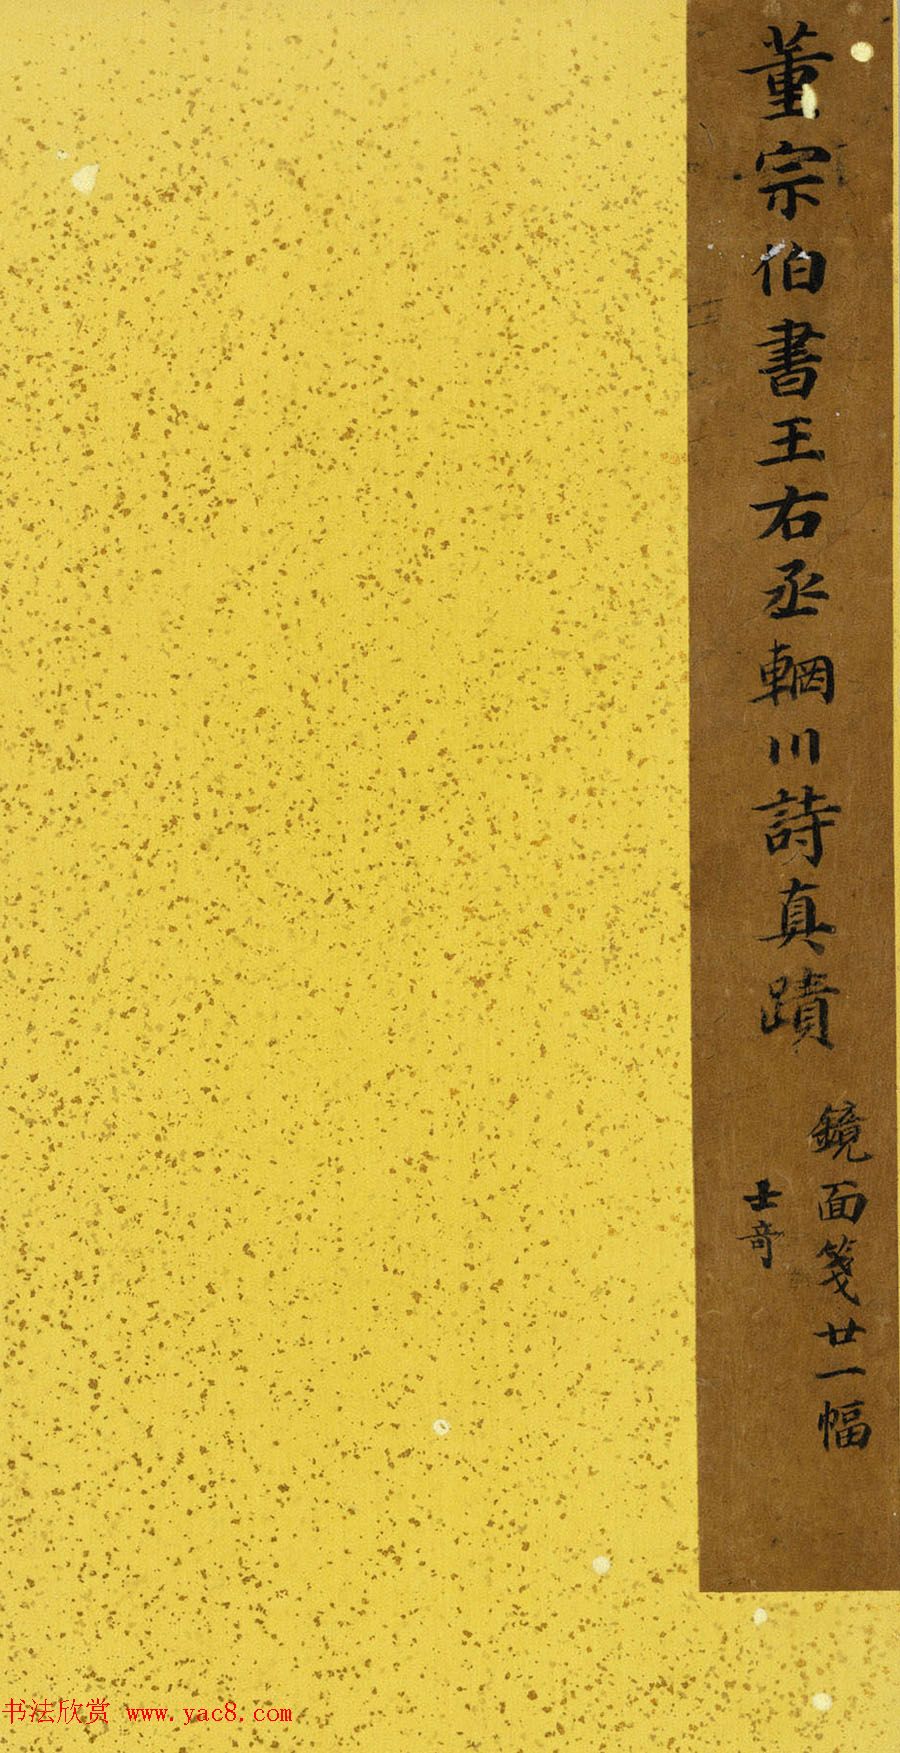 董宗伯書王右丞輞川詩真蹟
鏡面箋廿一幅
士奇
书法欣赏 www.yac8.com